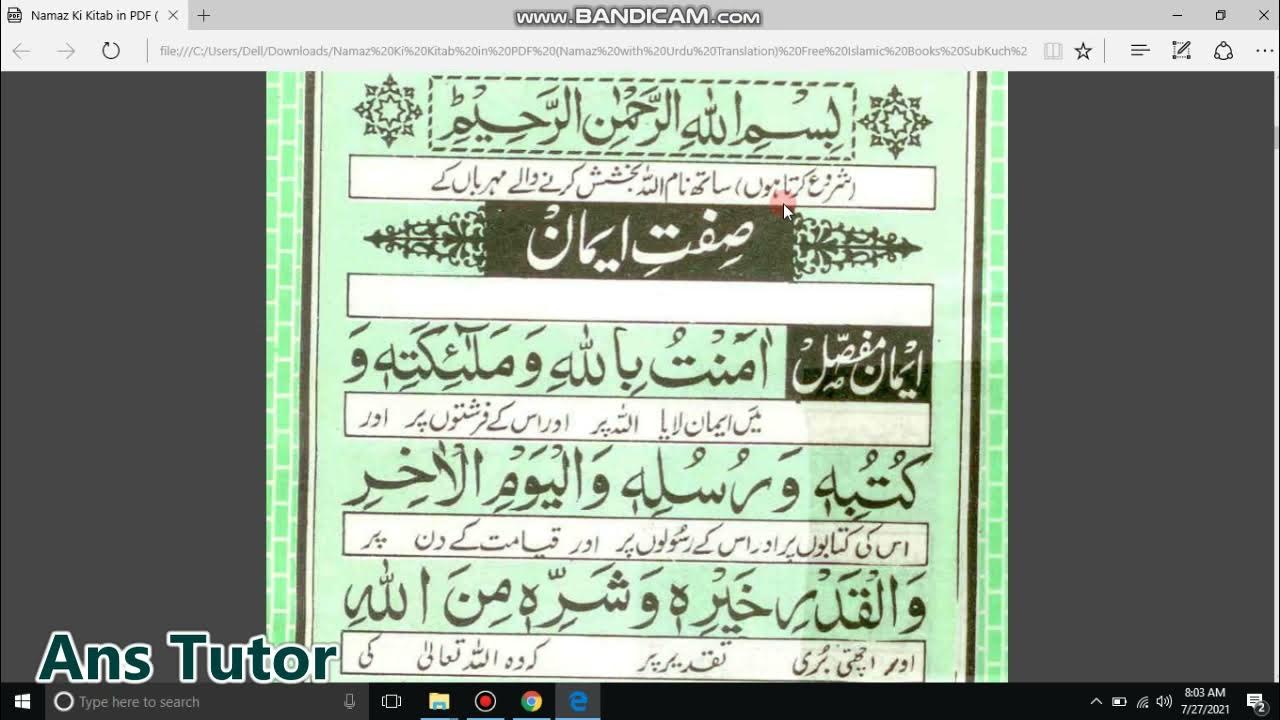 www.BANDICAM.com
Namaz Ki Kitab in PDF (
file:///C:/Users/Dell/Downloads/Namaz%20Ki%20Kitab%20in%20PDF%20(Namaz%20with%20Urdu%20Translation)%20Free%20Islamic%20Books%20SubKuch%2
بِسْمِ اللهِ الرَّحْمٰنِ الرَّحِيْمِ
(شروع کرتا ہوں) ساتھ نام اللہ بخشش کرنے والے مہرباں کے
صِفتِ ایمان
ایمان مفصّل
اٰمَنْتُ بِاللهِ وَ مَلٰٓئِكَتِهٖ وَ
میں ایمان لایا اللہ پر اور اس کے فرشتوں پر اور
كُتُبِهٖ وَ رُسُلِهٖ وَالْيَوْمِ الْاٰخِرِ
اس کی کتابوں پر اور اس کے رسُولوں پر اور قیامت کے دن پر
وَالْقَدْرِ خَيْرِهٖ وَشَرِّهٖ مِنَ اللهِ
اور اچھی بُری تقدیر پر کہ وہ اللہ تعالیٰ کی
Ans Tutor
Type here to search
8:03 AM
7/27/2021
2